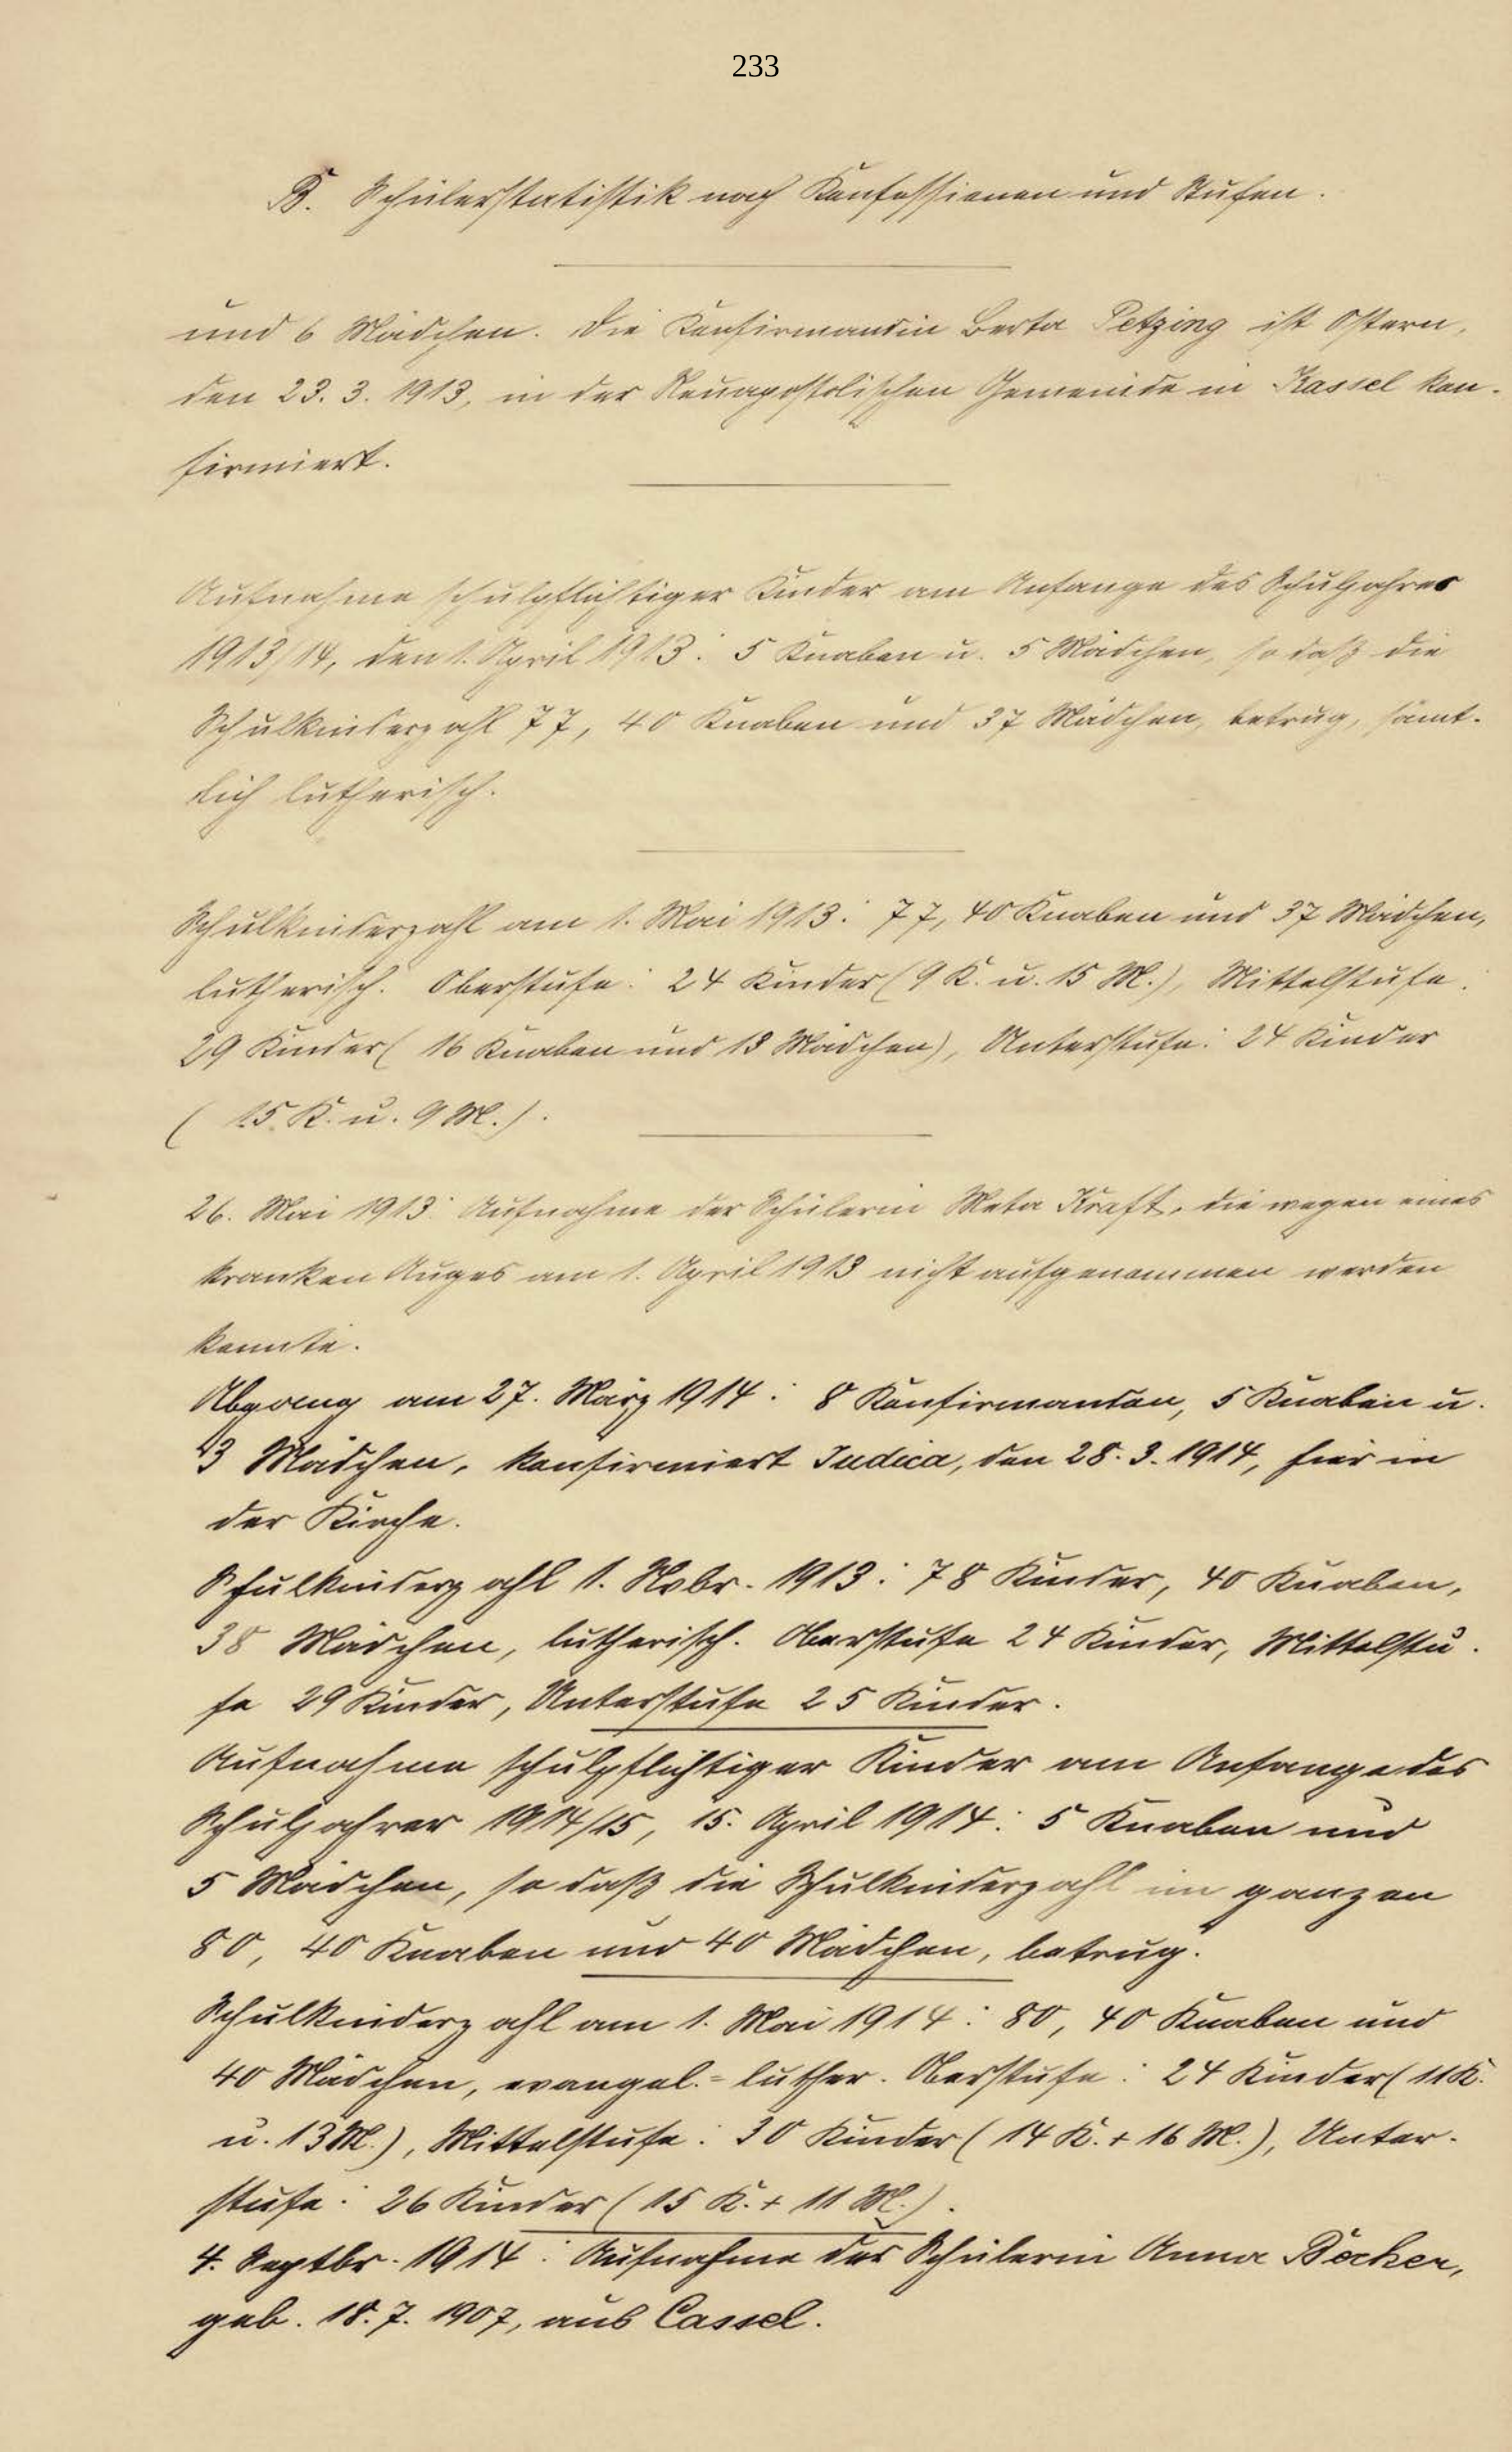 233
B. Schülerstatistik nach Konfessionen und Stufen.
und 6 Mädchen. Die Konfirmandin Berta Petzing ist Ostern,
den 23. 3. 1913, in der Neuapostolischen Gemeinde in Kassel kon-
firmiert.
Aufnahme schulpflichtiger Kinder am Anfange des Schuljahres
1913/14, den 1. April 1913: 5 Knaben u. 5 Mädchen, so daß die
Schulkinderzahl 77, 40 Knaben und 37 Mädchen, betrug, sämt-
lich lutherisch.
Schulkinderzahl am 1. Mai 1913: 77, 40 Knaben und 37 Mädchen,
lutherisch. Oberstufe: 24 Kinder (9 K. u. 15 M.), Mittelstufe:
29 Kinder (16 Knaben und 13 Mädchen), Unterstufe: 24 Kinder
(15 K. u. 9 M.).
26. Mai 1913: Aufnahme der Schülerin Meta Kraft, die wegen eines
kranken Auges am 1. April 1913 nicht aufgenommen werden
konnte.
Abgang am 27. März 1914: 8 Konfirmanden, 5 Knaben u.
3 Mädchen, konfirmiert Judica, den 28. 3. 1914, hier in
der Kirche.
Schulkinderzahl 1. Nobr. 1913: 78 Kinder, 40 Knaben,
38 Mädchen, lutherisch. Oberstufe 24 Kinder, Mittelstu-
fe 29 Kinder, Unterstufe 25 Kinder.
Aufnahme schulpflichtiger Kinder am Anfange des
Schuljahres 1914/15, 15. April 1914: 5 Knaben und
5 Mädchen, so daß die Schulkinderzahl im ganzen
80, 40 Knaben und 40 Mädchen, betrug.
Schulkinderzahl am 1. Mai 1914: 80, 40 Knaben und
40 Mädchen, evangel.=luther. Oberstufe: 24 Kinder (11 K.
u. 13 M.), Mittelstufe: 30 Kinder (14 K. + 16 M.), Unter-
stufe: 26 Kinder (15 K. + 11 M.).
4. Septbr. 1914: Aufnahme der Schülerin Anna Böcher,
geb. 18. 7. 1907, aus Cassel.